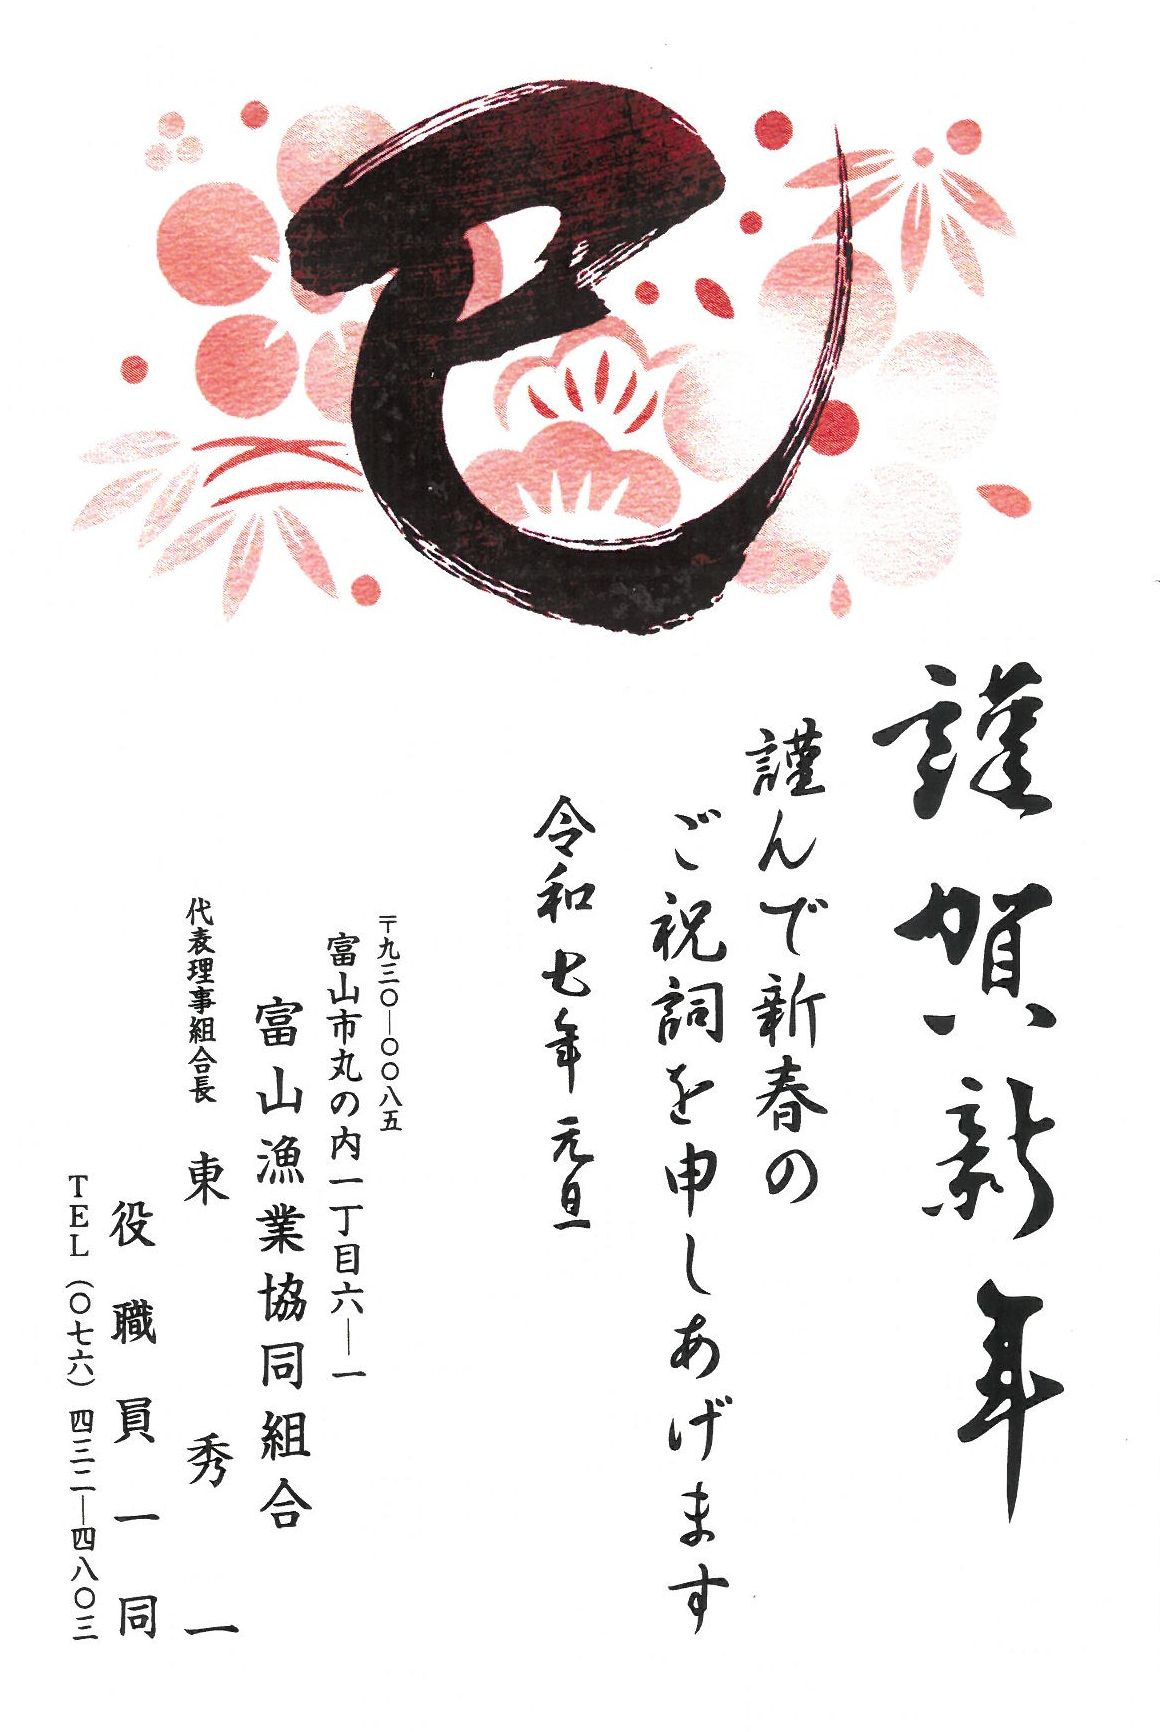 巳
謹賀新年
謹んで新春の
ご祝詞を申しあげます
令和七年 元旦
〒九三〇―〇〇八五
富山市丸の内一丁目六―一
富山漁業協同組合
代表理事組合長 東 秀 一
役職員一同
TEL(〇七六)四三二―四八〇三